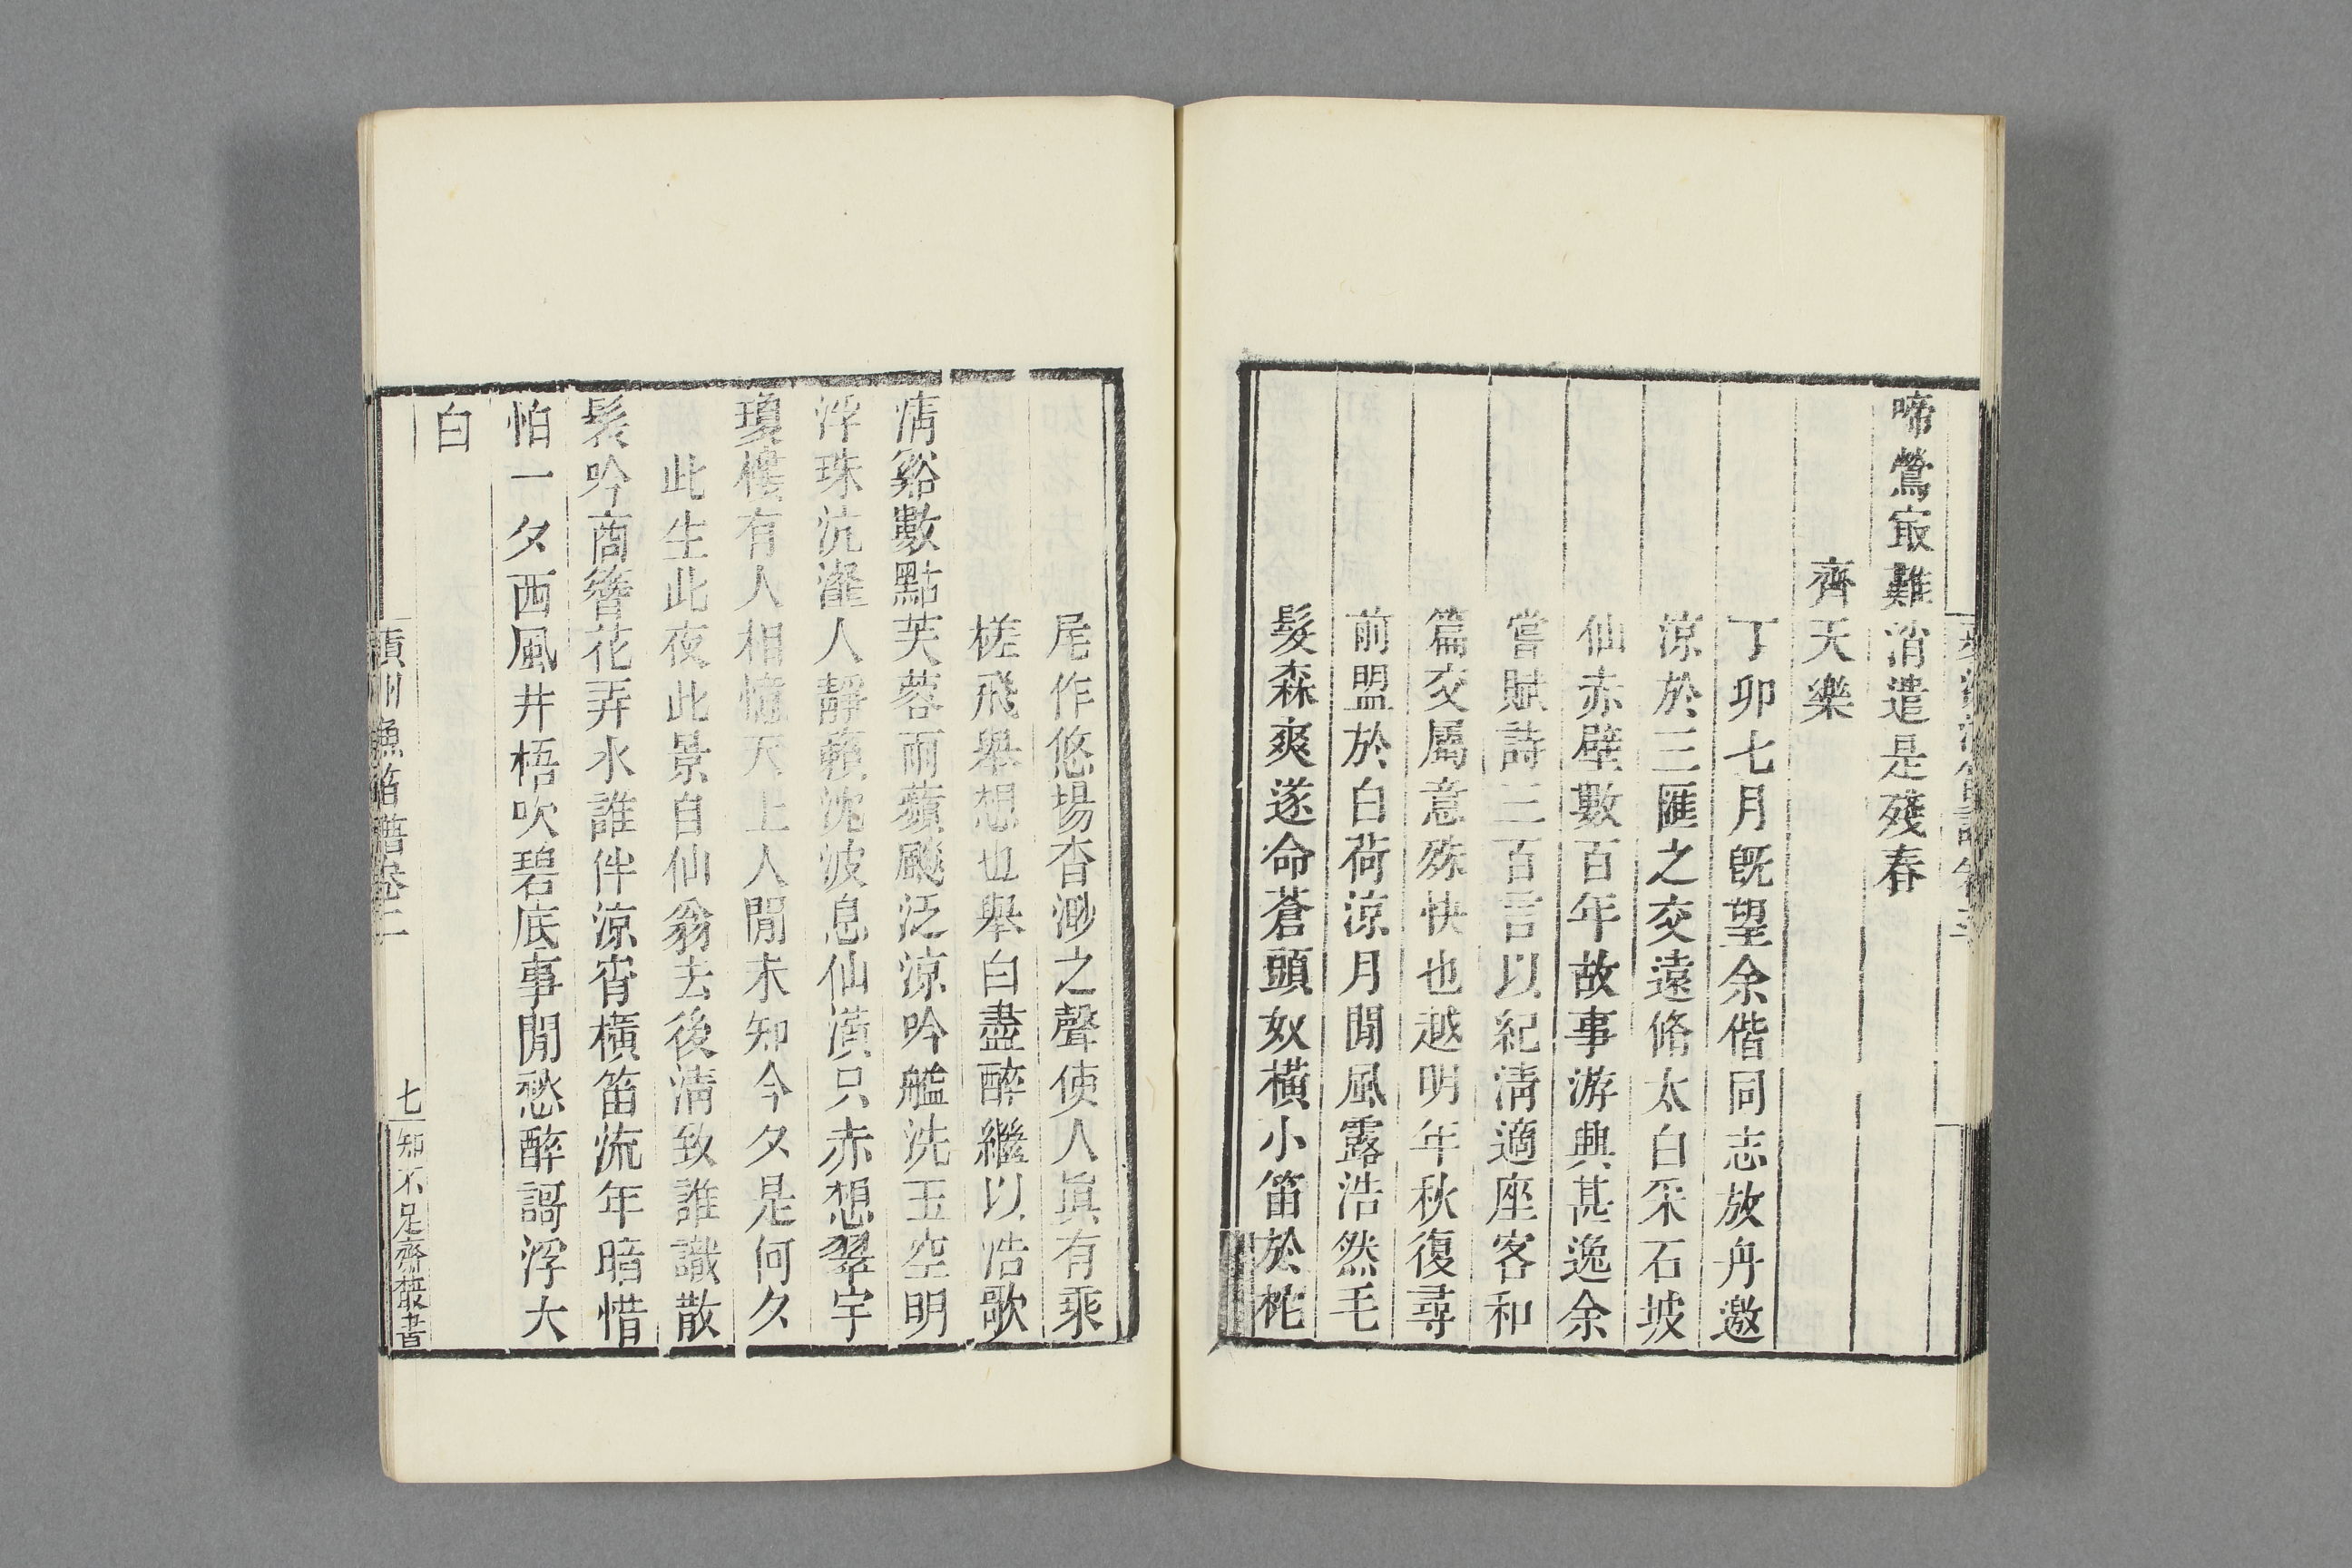 啼鶯㝡難消遣是殘春
齊天樂
丁卯七月旣望余偕同志放舟邀
涼於三匯之交遠脩太白采石坡
仙赤壁數百年故事游興甚逸余
嘗賦詩三百言以紀淸適座客和
篇交屬意殊快也越明年秋復尋
前盟於白荷涼月閒風露浩然毛
髮森爽遂命蒼頭奴橫小笛於柁
尾作悠揚杳渺之聲使人眞有乘
槎飛舉想也舉白盡醉繼以浩歌
淸谿數點芙蓉雨蘋飈泛涼吟艗洗玉空明
浮珠沆瀣人靜籟沈波息仙潢只赤想翠宇
瓊樓有人相憶天上人閒未知今夕是何夕
此生此夜此景自仙翁去後淸致誰識散
髮吟商簪花弄水誰伴涼宵橫笛流年暗惜
怕一夕西風井梧吹碧底事閒愁醉謌浮大
白
蘋洲漁笛譜卷二
七
知不足齋叢書